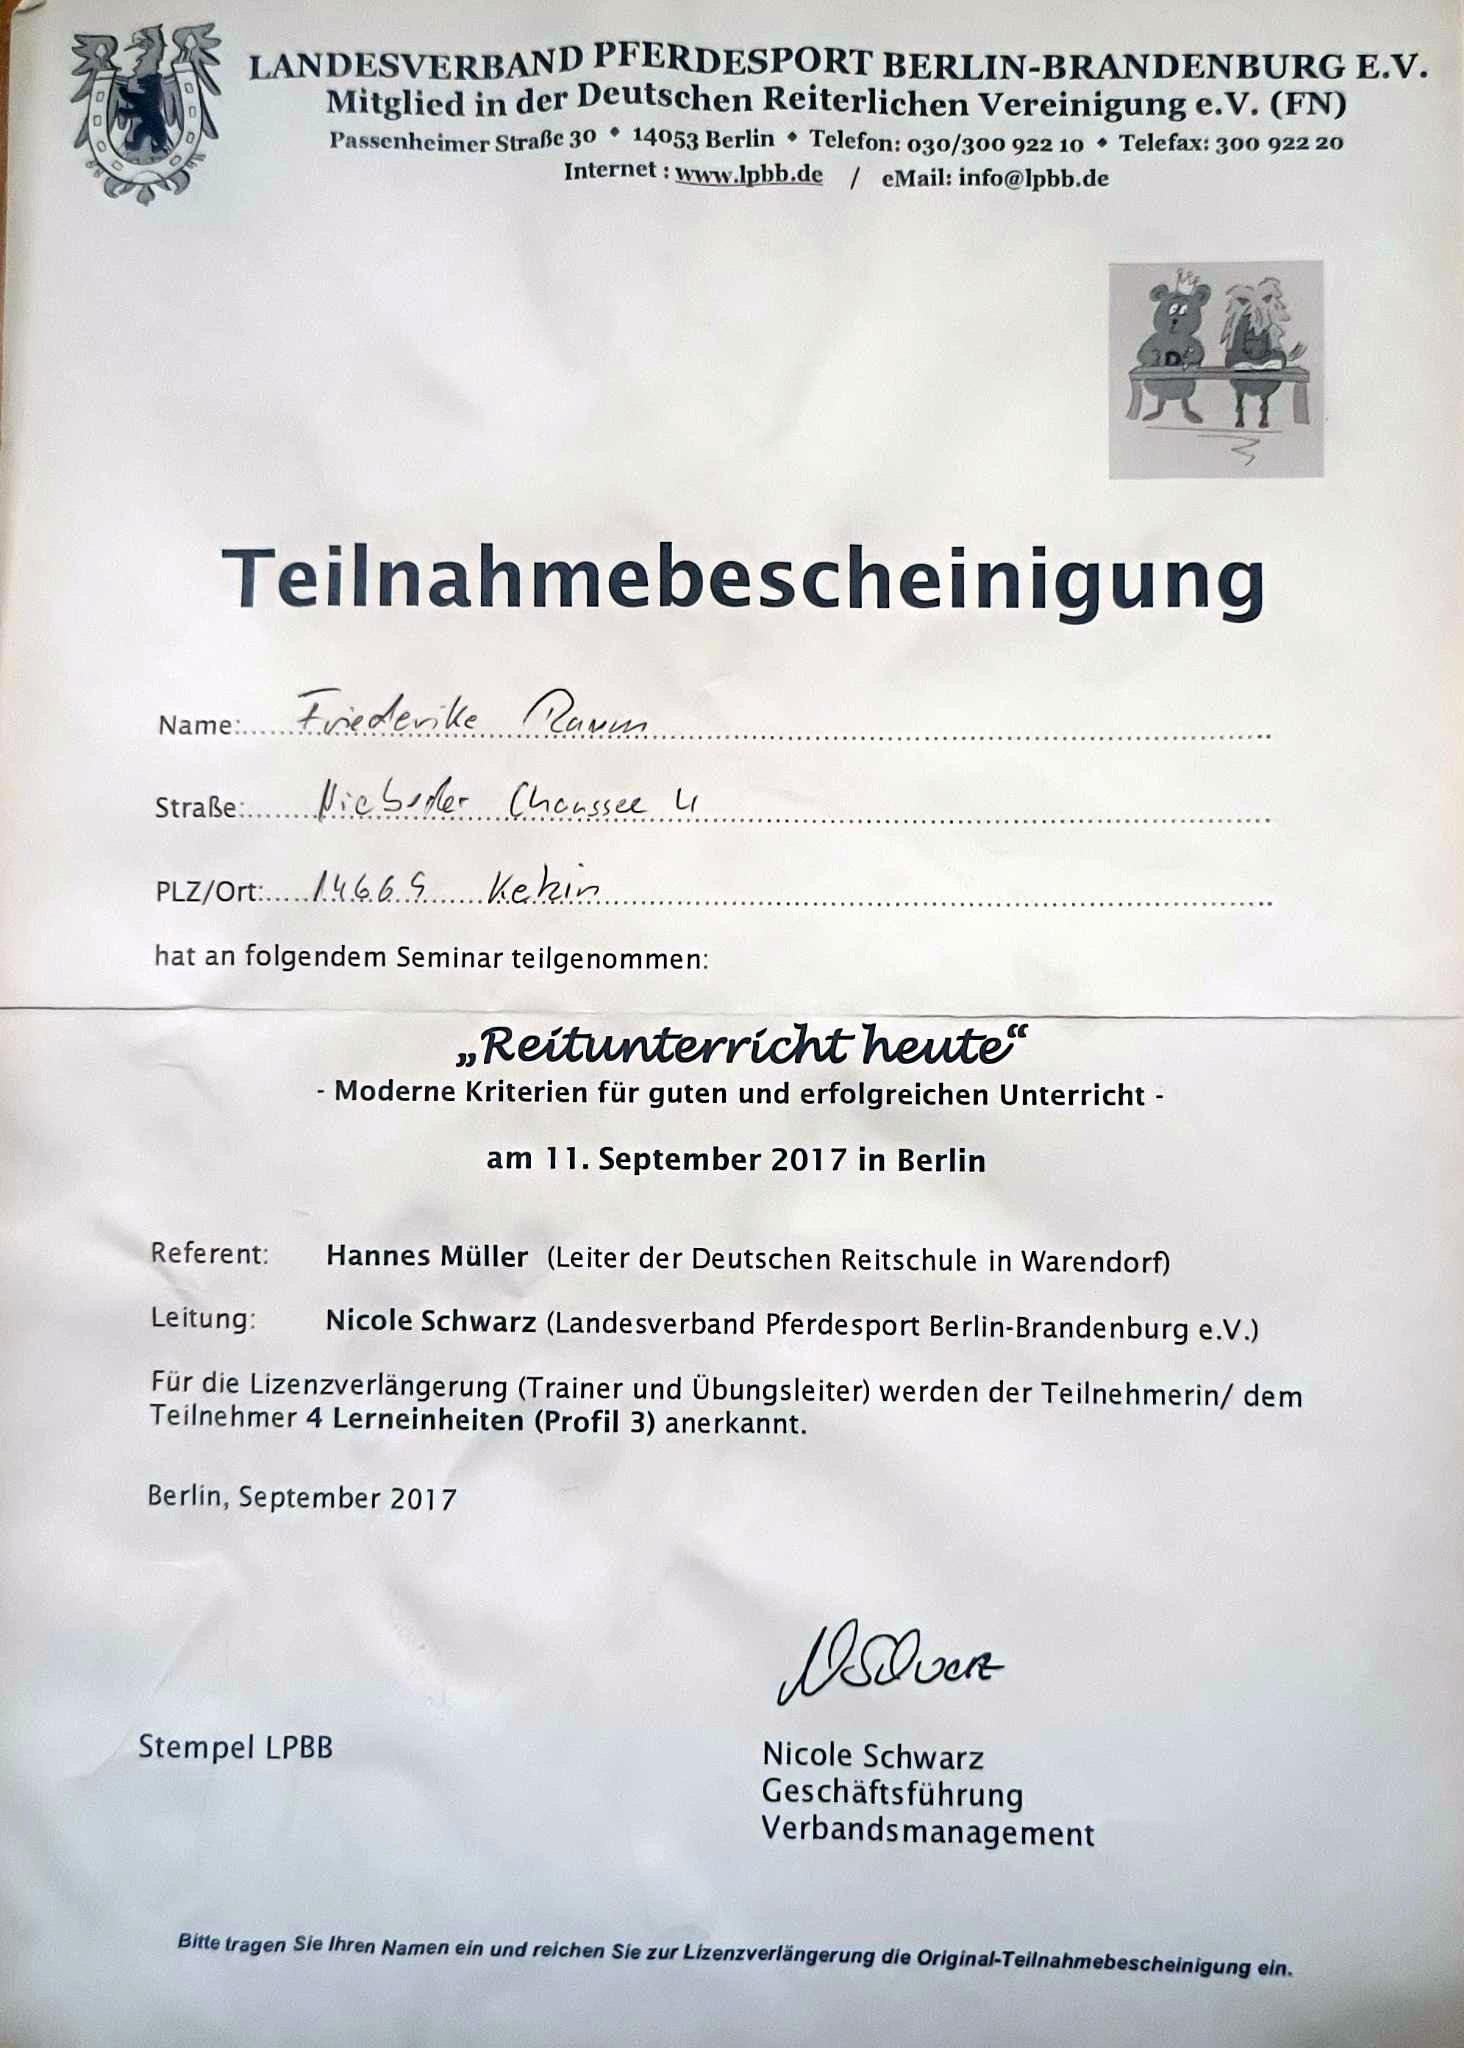 LANDESVERBAND PFERDESPORT BERLIN-BRANDENBURG E.V.
Mitglied in der Deutschen Reiterlichen Vereinigung e.V. (FN)
Passenheimer Straße 30 • 14053 Berlin • Telefon: 030/300 922 10 • Telefax: 300 922 20
Internet : www.lpbb.de / eMail: info@lpbb.de
Teilnahmebescheinigung
Name: Friederike
Straße: Chaussee 4
PLZ/Ort: 14669 Ketzin
hat an folgendem Seminar teilgenommen:
„Reitunterricht heute“
- Moderne Kriterien für guten und erfolgreichen Unterricht -
am 11. September 2017 in Berlin
Referent: Hannes Müller (Leiter der Deutschen Reitschule in Warendorf)
Leitung: Nicole Schwarz (Landesverband Pferdesport Berlin-Brandenburg e.V.)
Für die Lizenzverlängerung (Trainer und Übungsleiter) werden der Teilnehmerin/ dem
Teilnehmer 4 Lerneinheiten (Profil 3) anerkannt.
Berlin, September 2017
NSchwarz
Stempel LPBB
Nicole Schwarz
Geschäftsführung
Verbandsmanagement
Bitte tragen Sie Ihren Namen ein und reichen Sie zur Lizenzverlängerung die Original-Teilnahmebescheinigung ein.